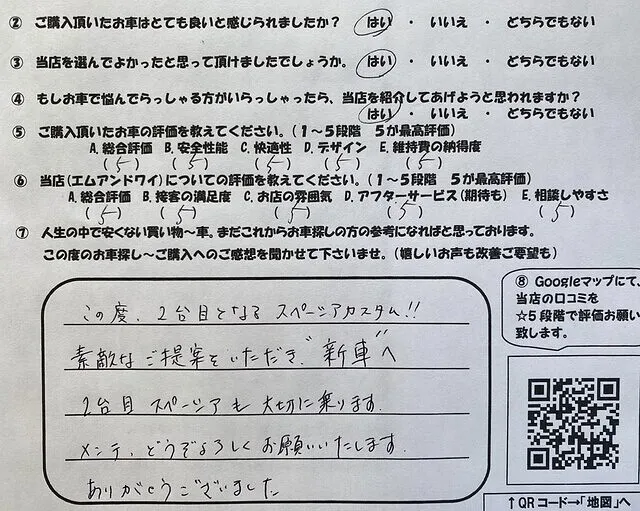 ② ご購入頂いたお車はとても良いと感じられましたか？ はい ・ いいえ ・ どちらでもない
③ 当店を選んでよかったと思って頂けましたでしょうか。 はい ・ いいえ ・ どちらでもない
④ もしお車で悩んでらっしゃる方がいらっしゃったら、当店を紹介してあげようと思われますか？
はい ・ いいえ ・ どちらでもない
⑤ ご購入頂いたお車の評価を教えてください。（1～5段階 5が最高評価）
A. 総合評価 B. 安全性能 C. 快適性 D. デザイン E. 維持費の納得度
(5) (5) (5) (5) (5)
⑥ 当店（エムアンドワイ）についての評価を教えてください。（1～5段階 5が最高評価）
A. 総合評価 B. 接客の満足度 C. お店の雰囲気 D. アフターサービス（期待も） E. 相談しやすさ
(5) (5) (5) (5) (5)
⑦ 人生の中で安くない買い物～車。まだこれからお車探しの方の参考になればと思っております。
この度のお車探し～ご購入へのご感想を聞かせて下さいませ。（嬉しいお声も改善ご要望も）
この度、2台目となる スペーシアカスタム!!
素敵なご提案をいただき、"新車"へ
2台目 スペーシアも 大切に乗ります.
メンテ、どうぞよろしく お願いいたします.
ありがとうございました
⑧ Googleマップにて、
当店の口コミを
☆5段階で評価お願い
致します。
↑QRコード→「地図」へ